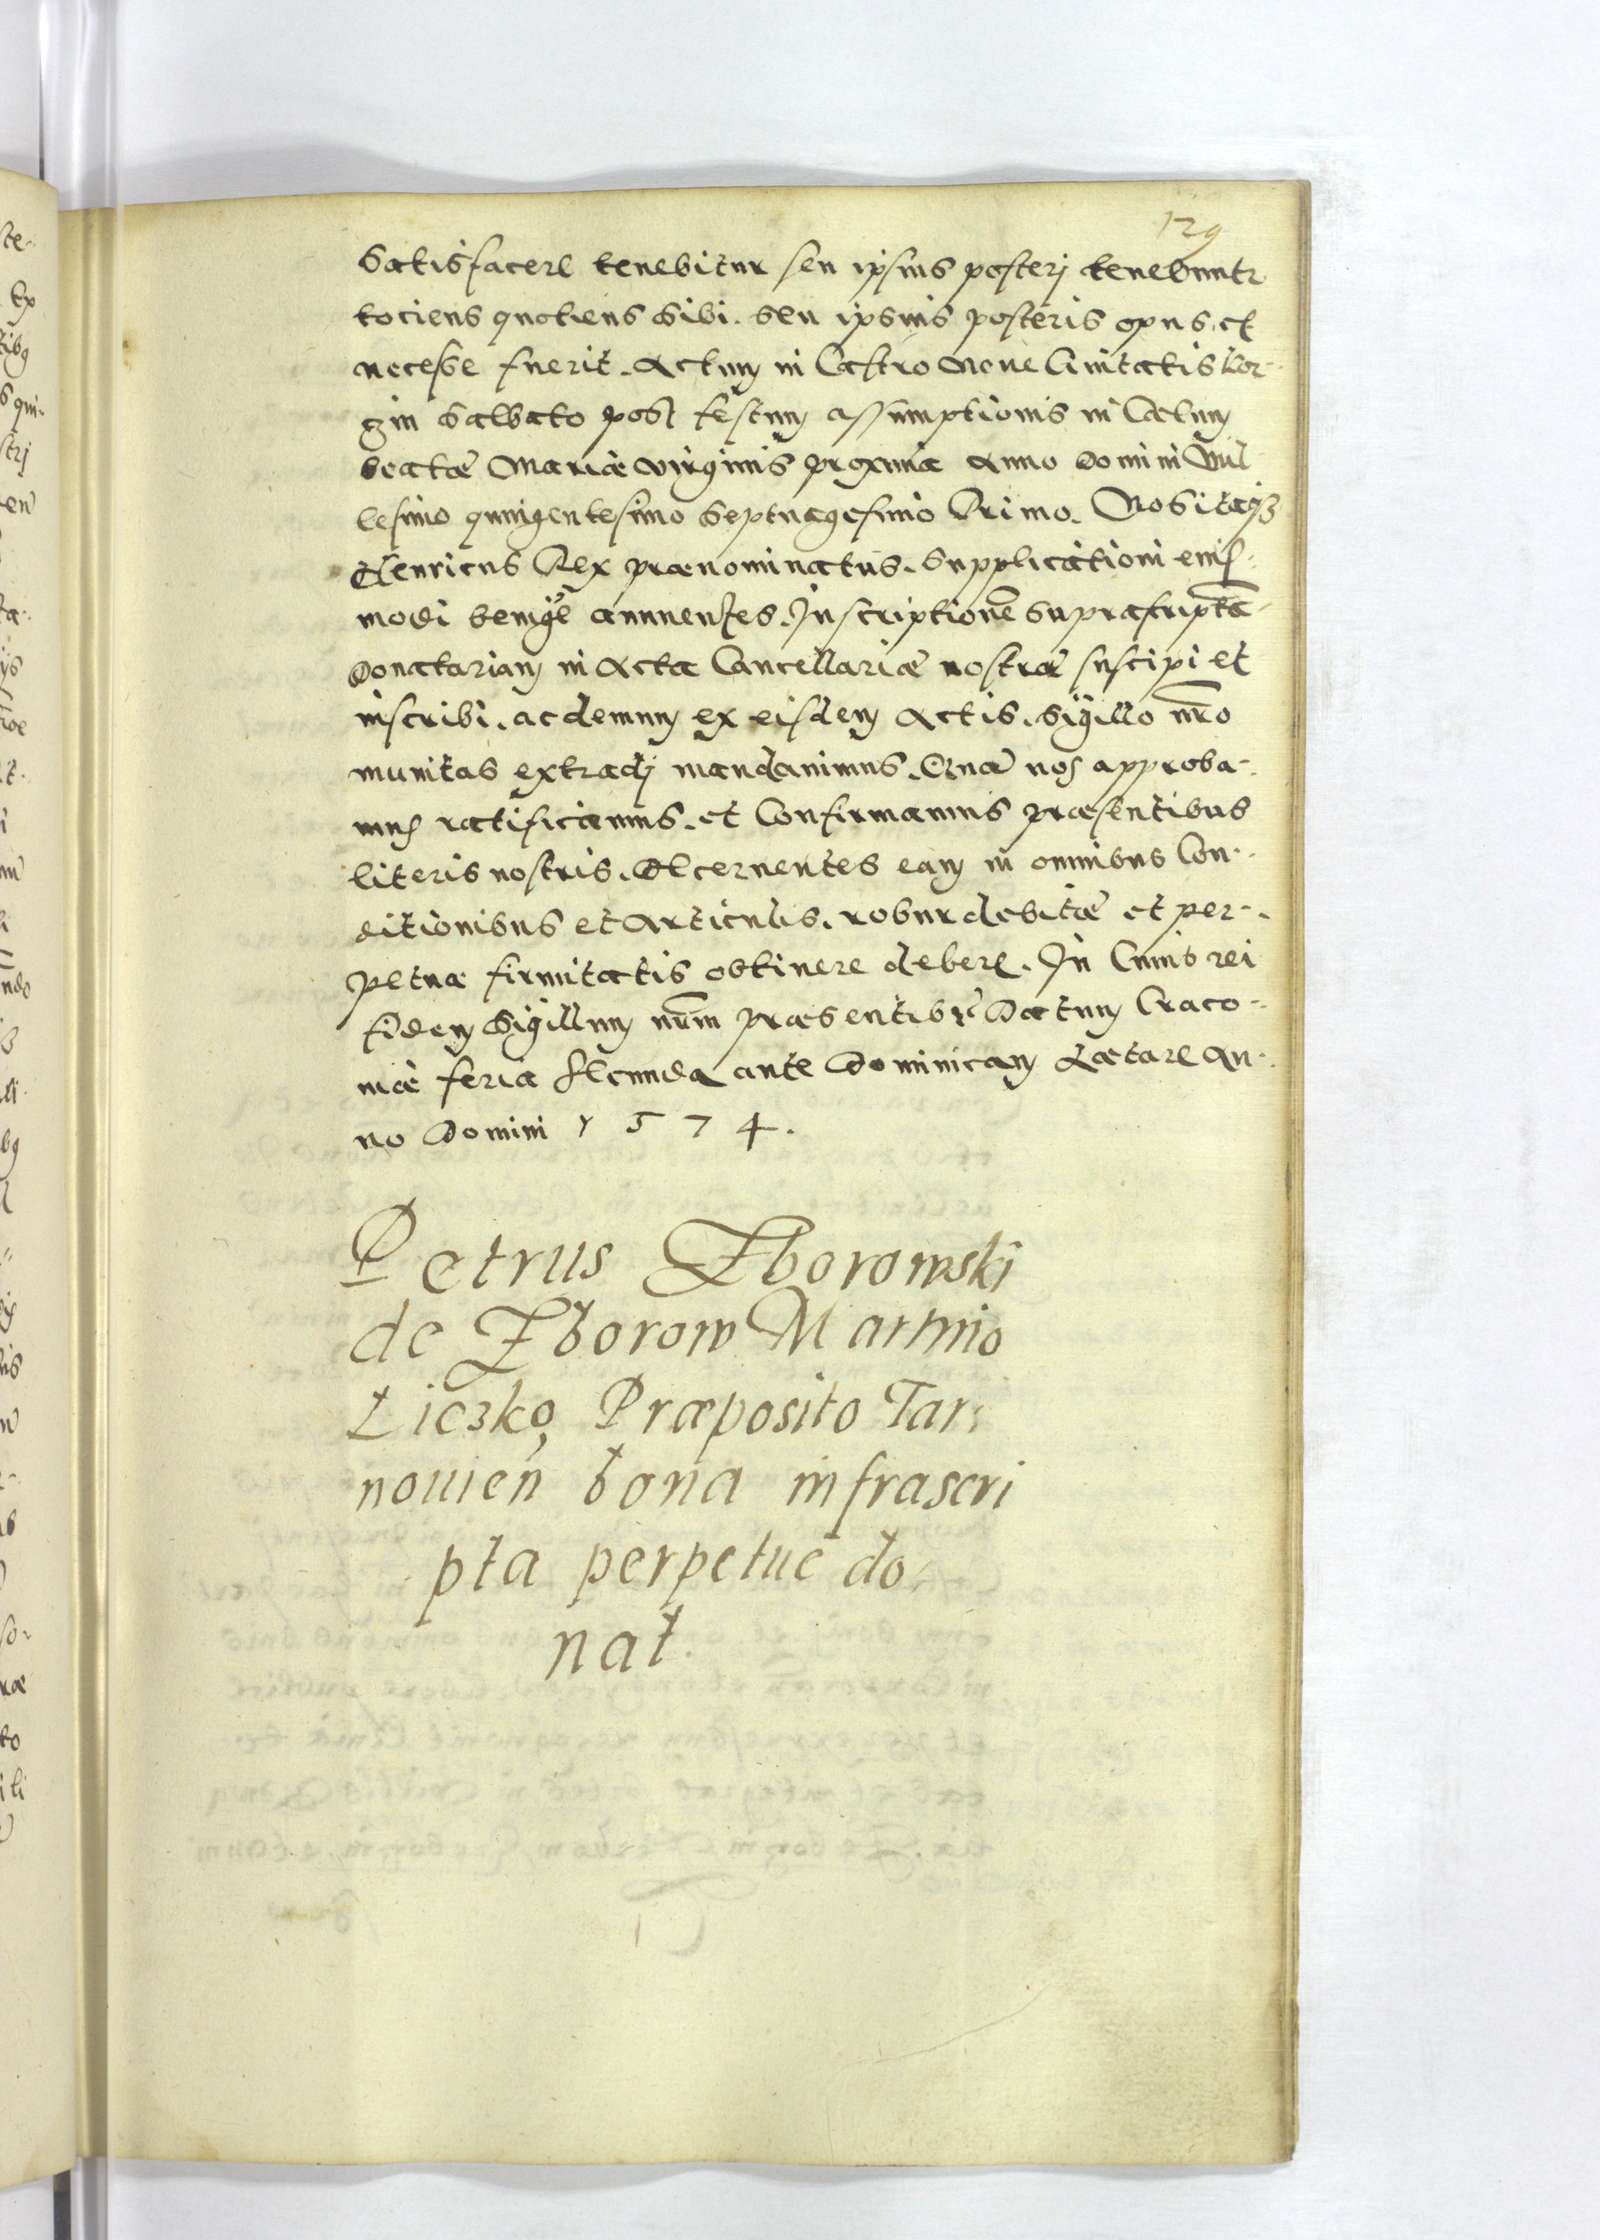 129
Satisfacere tenebitur seu ipsius posterj tenebuntr
tociens quotiens sibi. seu ipsius posteris opus et
necesse fuerit. Actum in Castro Noue Ciuitatis Cor-
gin Sabbato post festum assumptionis in Cælum
beatæ Mariæ virginis proximæ Anno Domini Mil
lesimo quingentesimo Septuagesimo Primo. Nos itaq3
Henricus Rex prænominatus. Supplicationi eius-
modi benigne annuentes. Inscriptionē suprascriptā
Donatariam in Acta Cancellariæ nostræ suscipi et
inscribi. ac demum ex eisdem Actis. Sigillo nr̄o
munitas extradj mandauimus. Quā nos approba-
mus ratificamus. et Confirmamus præsentibus
literis nostris. Decernentes eam in omnibus Con-
ditionibus et Articulis. robur debitæ et per-
petuæ firmitatis obtinere debere. In Cuius rei
fidem Sigillum nr̄m præsentibus Datum Craco-
uiæ feria secunda ante Dominicam Lætare An-
no Domini 1574.
Petrus Zborowski
de Zborow Martino
Liczko Præposito Tar-
nouien bona infrascri
pta perpetue do
nat.